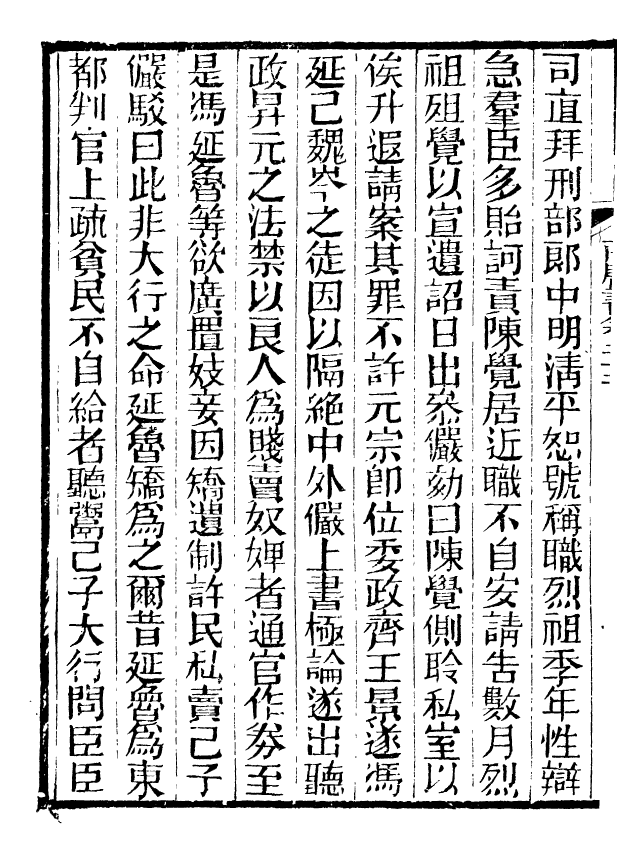 司直拜刑部郎中明清平恕號稱職烈祖季年性辯
急羣臣多貽訶責陳覺居近職不自安請告數月烈
祖殂覺以宣遺詔日出叅儼劾曰陳覺側聆私室以
俟升遐請案其罪不許元宗卽位委政齊王景遂馮
延己魏岑之徒因以隔絶中外儼上書極論遂出聽
政昇元之法禁以良人爲賤賣奴婢者通官作券至
是馮延魯等欲廣置妓妾因矯遺制許民私賣己子
儼駁曰此非大行之命延魯矯爲之爾昔延魯爲東
都判官上疏貧民不自給者聽鬻己子大行問臣臣